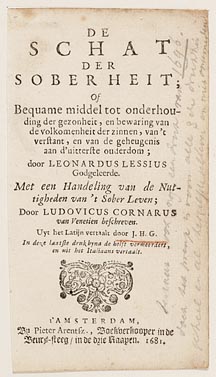 DE
SCHAT
DER
SOBERHEIT;
Of
Bequame middel tot onderhou-
ding der gezonheit, en bewaring van
de volkomenheit der zinnen, van 't
verstant, en van de geheugenis
aan d'uitterste ouderdom;
door LEONARDUS LESSIUS
Godgeleerde.
Met een Handeling van de Nut-
tigheden van 't Sober Leven;
Door LUDOVICUS CORNARUS
van Venetien beschreven.
Uyt het Latijn vertaalt door J. H. G.
In deze laatste druk byna de helft vermeerdert,
en uit het Italiaans vertaalt.
t'AMSTERDAM,
By Pieter Arentsz., Boekverkooper in de
Beurs-steeg / in de drie Raapen. 1681.